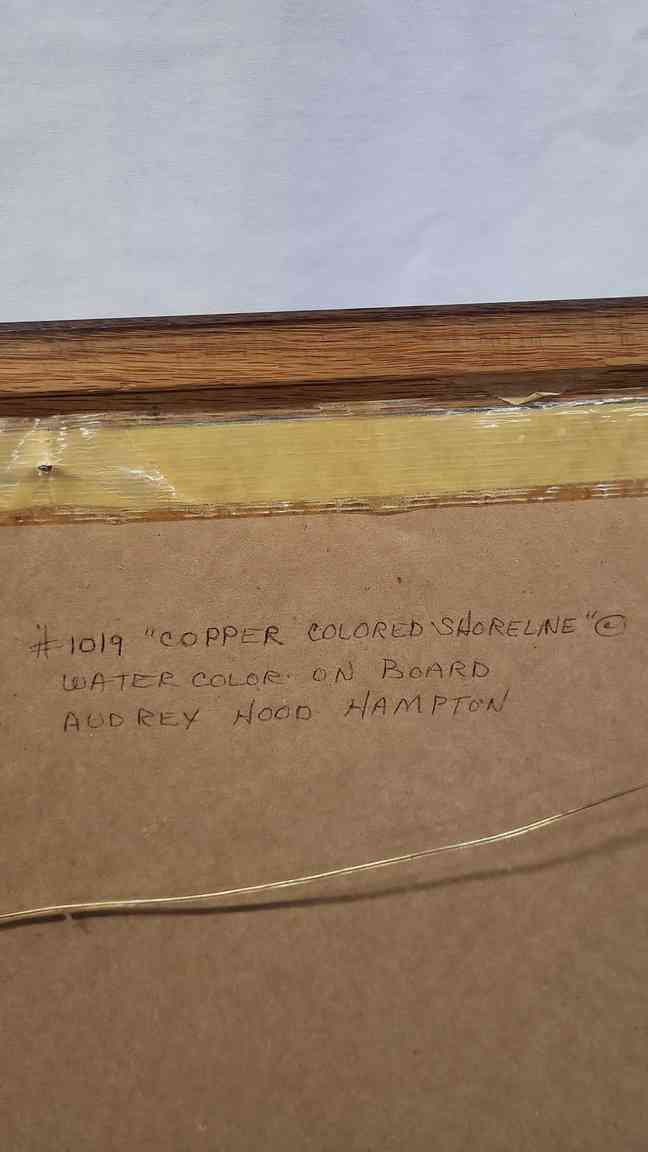 #1019 "COPPER COLORED SHORELINE" ©
WATER COLOR ON BOARD
AUDREY HOOD HAMPTON